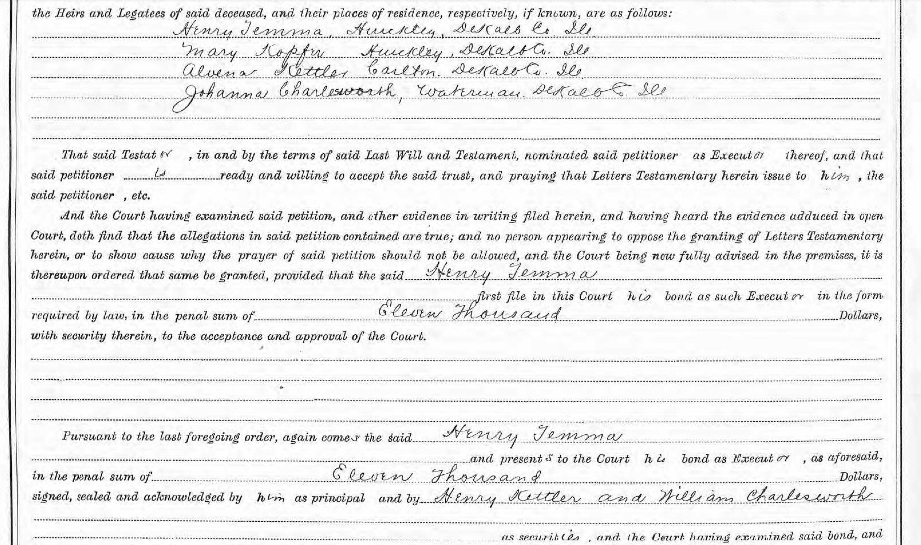 the Heirs and Legatees of said deceased, and their places of residence, respectively, if known, are as follows:
Henry Temma, Hinckley, DeKalb Co. Ills
Mary Kopfer Hinckley, DeKalb Co. Ills
Alvena Kettler Carlton. DeKalb Co. Ills
Johanna Charlesworth, Waterman. DeKalb Co Ills
That said Testator, in and by the terms of said Last Will and Testament, nominated said petitioner as Executor thereof, and that
said petitioner is ready and willing to accept the said trust, and praying that Letters Testamentary herein issue to him, the
said petitioner, etc.
And the Court having examined said petition, and other evidence in writing filed herein, and having heard the evidence adduced in open
Court, doth find that the allegations in said petition contained are true; and no person appearing to oppose the granting of Letters Testamentary
herein, or to show cause why the prayer of said petition should not be allowed, and the Court being now fully advised in the premises, it is
thereupon ordered that same be granted, provided that the said Henry Temma
first file in this Court his bond as such Executor in the form
required by law, in the penal sum of Eleven Thousand Dollars,
with security therein, to the acceptance and approval of the Court.
Pursuant to the last foregoing order, again comes the said Henry Temma
and presents to the Court his bond as Executor, as aforesaid,
in the penal sum of Eleven Thousand Dollars,
signed, sealed and acknowledged by him as principal and by Henry Kettler and William Charlesworth
as securities, and the Court having examined said bond, and